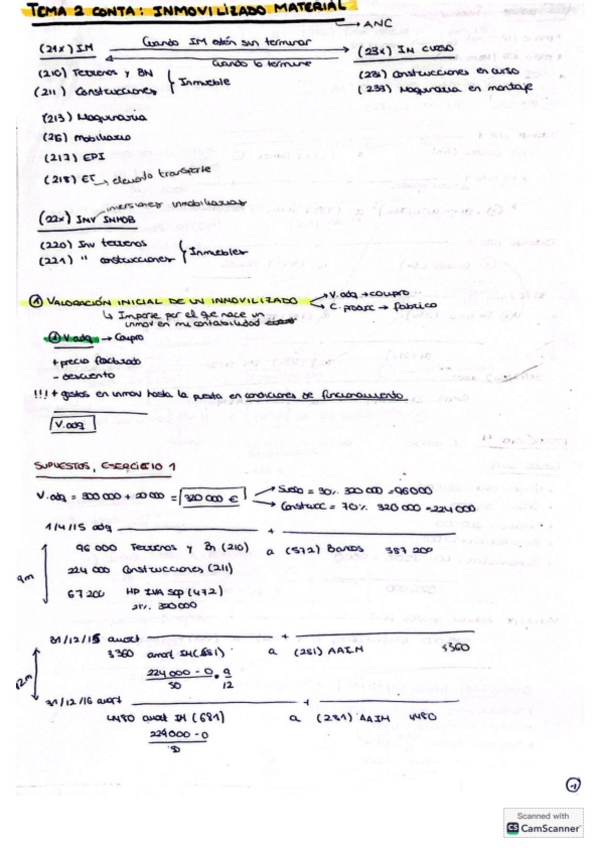 TEMA 2 CONTA: INMOVILIZADO MATERIAL
→ ANC
(21x) IM Cuando IM estén sin terminar (23x) IN CURSO
Cuando lo termine
(210) Terrenos y BN } Inmueble (231) Construcciones en curso
(211) Construcciones (233) Maquinaria en montaje
(213) Maquinaria
(216) mobiliario
(217) EPI
(218) ET → elemento transporte
inversiones inmobiliarias
(22x) INV INMOB
(220) Inv terrenos } Inmuebles
(221) " construcciones
① VALORACIÓN INICIAL DE UN INMOVILIZADO → V.adq → compro
→ C. prodc → fabrico
↳ Importe por el que nace un
inmov en mi contabilidad
① V.adq → Compro
+ precio facturado
- descuento
!!! + gastos en inmov hasta la puesta en condiciones de funcionamiento
V.adq
SUPUESTOS, EJERCICIO 1
V.adq = 300 000 + 20 000 = 320 000 € → Suelo = 30% 320 000 = 96000
→ Construcc = 70% 320 000 = 224 000
1/4/15 adq +
96 000 Terrenos y Bn (210) a (572) Bancos 387 200
224 000 Construcciones (211)
9m
67 200 HP IVA SOP (472)
21% 320 000
31/12/15 amort +
3360 amort IM (681) a (281) AAIM 3360
224 000 - 0 · 9
50 12
12m
31/12/16 amort +
4480 amort IM (681) a (281) AAIM 4480
224000 - 0
1
Scanned with
CS CamScanner